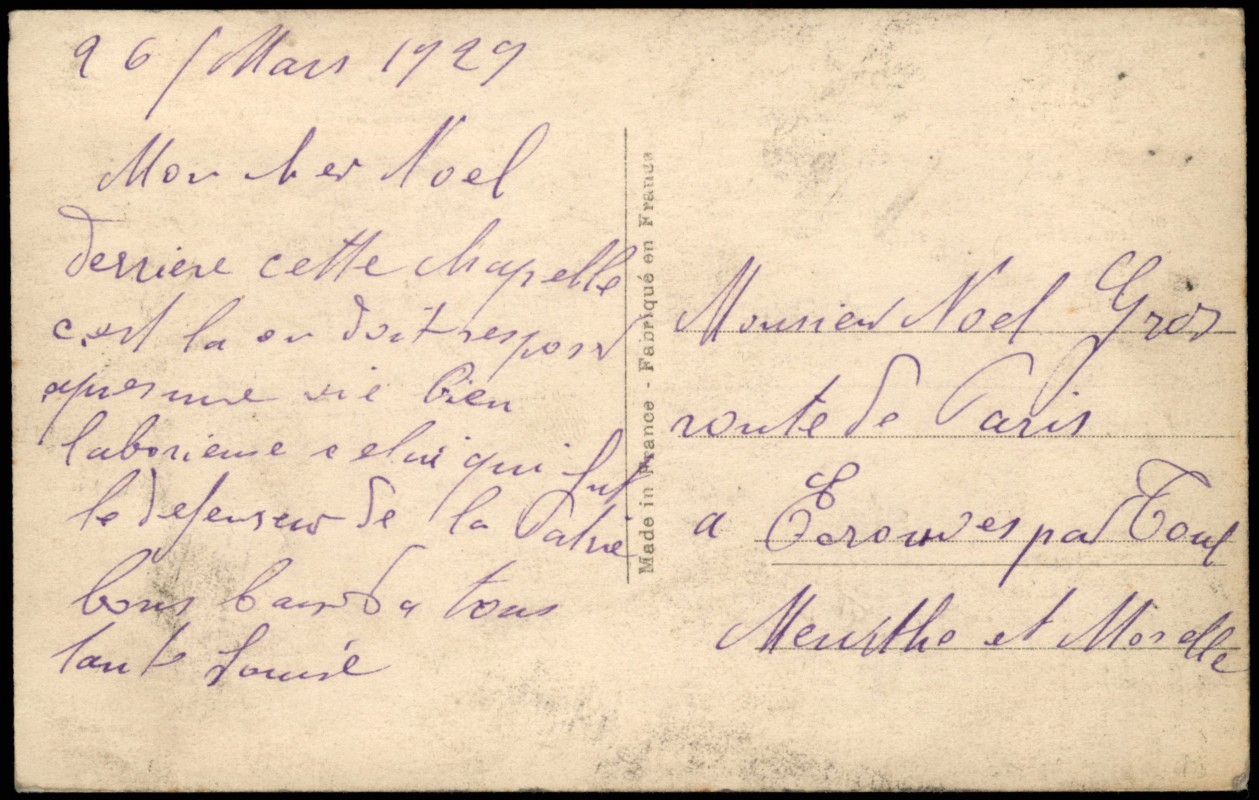 26 / Mars 1929
Mon cher Noel
derriere cette chapelle
c'est la ou doit reposer
apres une vie bien
laborieuse celui qui fut
le defenseur de la Patrie
bons baisers a tous
tant Louise
Made in France - Fabriqué en France
Monsieur Noel Gros
route de Paris
a Ecrouves par Toul
Meurthe et Moselle